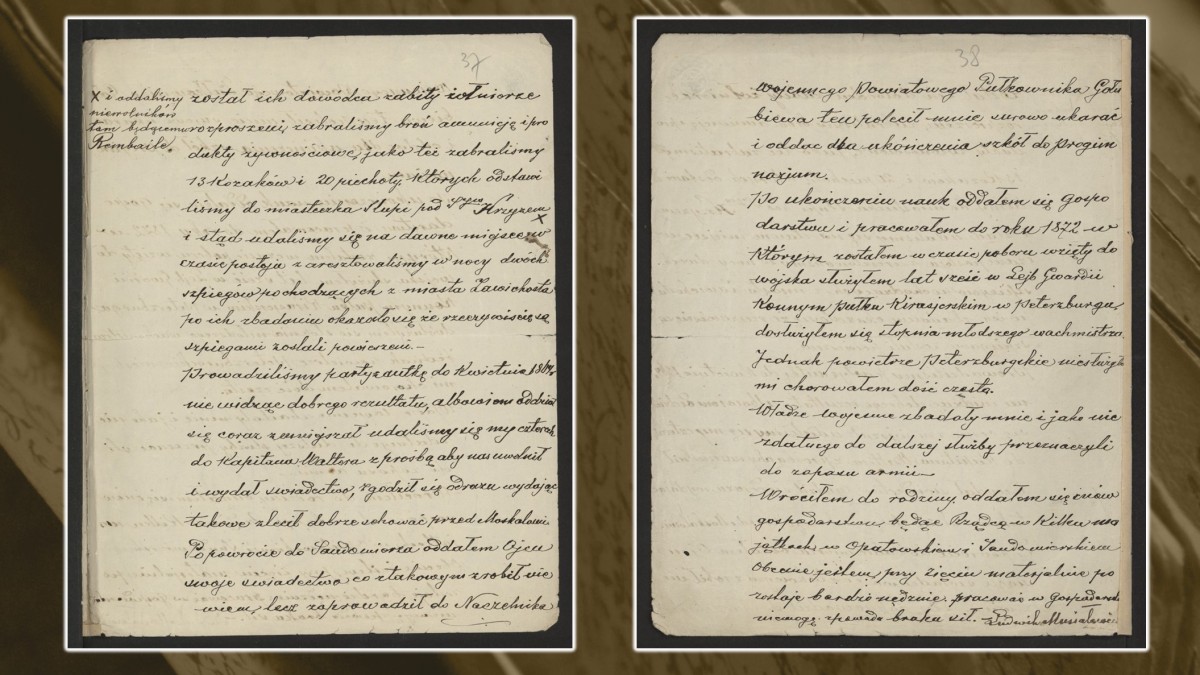 37
X i oddaliśmy
niewolników
tam będącemu
Rembaile.
został ich dowódca zabity żołnierze
rozproszeni, zabraliśmy broń amunicję i pro
dukty żywnościowe, jako też zabraliśmy
13 Kozaków i 20 piechoty. Których odstawi
liśmy do miasteczka Słupi pod Krzyżem
X
i stąd udaliśmy się na dawne miejsce w
czasie postoja zaresztowaliśmy w nocy dwóch
szpiegów pochodzących z miasta Zawichosta
po ich zbadaniu okazało się że rzeczywiście są
szpiegami zostali powieszeni.—
Prowadziliśmy partyzantkę do Kwietnia 1864r.
nie widząc dobrego rezultatu, albowiem oddział
się coraz zmniejszał udaliśmy się my czterech
do Kapitana Waltora z prośbą aby nas uwolnił
i wydał świadectwo, zgodził się odrazu wydając
takowe zlecił dobrze schować przed Moskalami
Po powrocie do Sandomierza oddałem Ojcu
swoje świadectwo co z takowym zrobił nie
wiem, lecz zaprowadził do Naczelnika
38
wojennego Powiatowego Pułkownika Gołu
biewa ten polecił mnie surowo ukarać
i oddać dla ukończenia szkół do progim
nazjum.
Po ukończeniu nauk oddałem się gospo
darstwu i pracowałem do roku 1872 w
którym zostałem w czasie poboru wzięty do
wojska służyłem lat sześć w Lejb Gwardii
Konnym pułku Kirasjerskim w Petersburgu,
dosłużyłem się stopnia młodszego wachmistrza.
Jednak powietrze Petersburgskie niesłużyło
mi chorowałem dość często.
Władze wojenne zbadały mnie i jako nie
zdatnego do dalszej służby przeznaczyli
do zapasu armii—
Wróciłem do rodziny oddałem się znów
gospodarstwu, będąc Rządcą w Kilku ma
jątkach w Opatowskiem i Sandomierskiem
Obecnie jestem przy zięciu materjalnie po
zostaję bardzo nędznie. pracować w gospodarst
niemogę z powodu braku sił. Ludwik